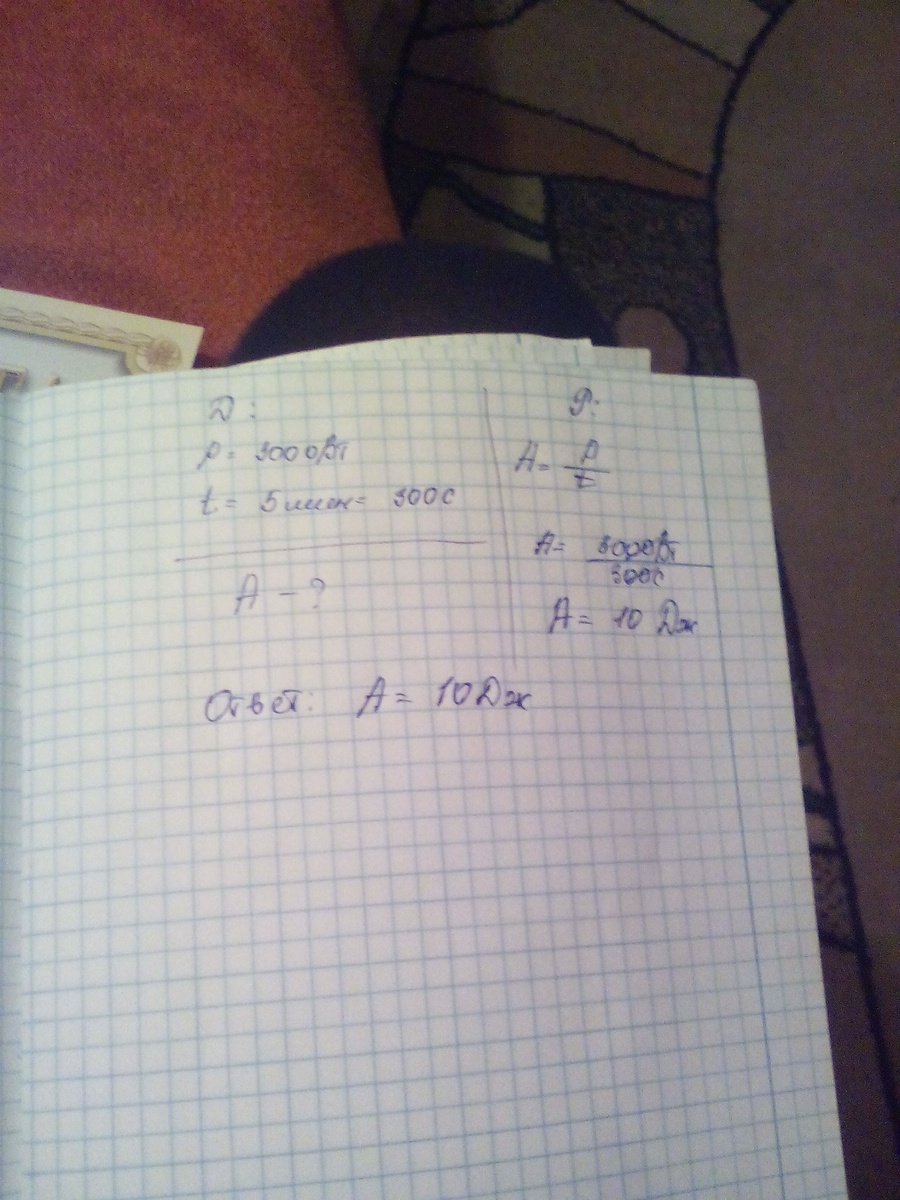 Д:
P = 3000Вт
t = 5 мин = 300с
A - ?
Р:
A = P/t
A = 3000Вт/300с
A = 10 Дж
Ответ: A = 10 Дж